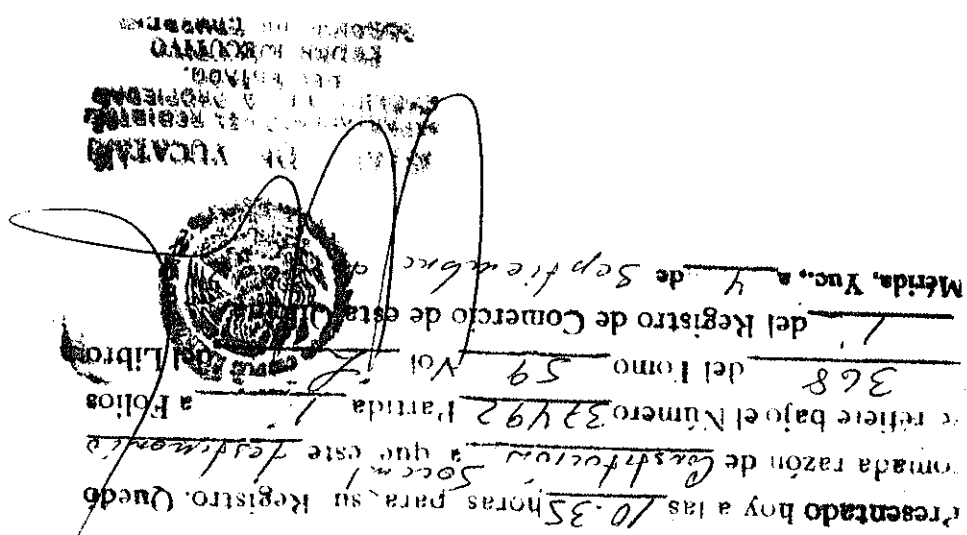 Presentado hoy a las 10.35 horas para su Registro. Quedó
tomada razón de Constitución Social a que este testimonio
se refiere bajo el Número 37492 Partida 1 a Folios
368 del Tomo 59 Vol del Libro
1 del Registro de Comercio de esta
Mérida, Yuc., a 4 de Septiembre d
DE YUCATAN
DEL REGISTRO
PROPIEDAD
DEL ESTADO.
PODER EJECUTIVO